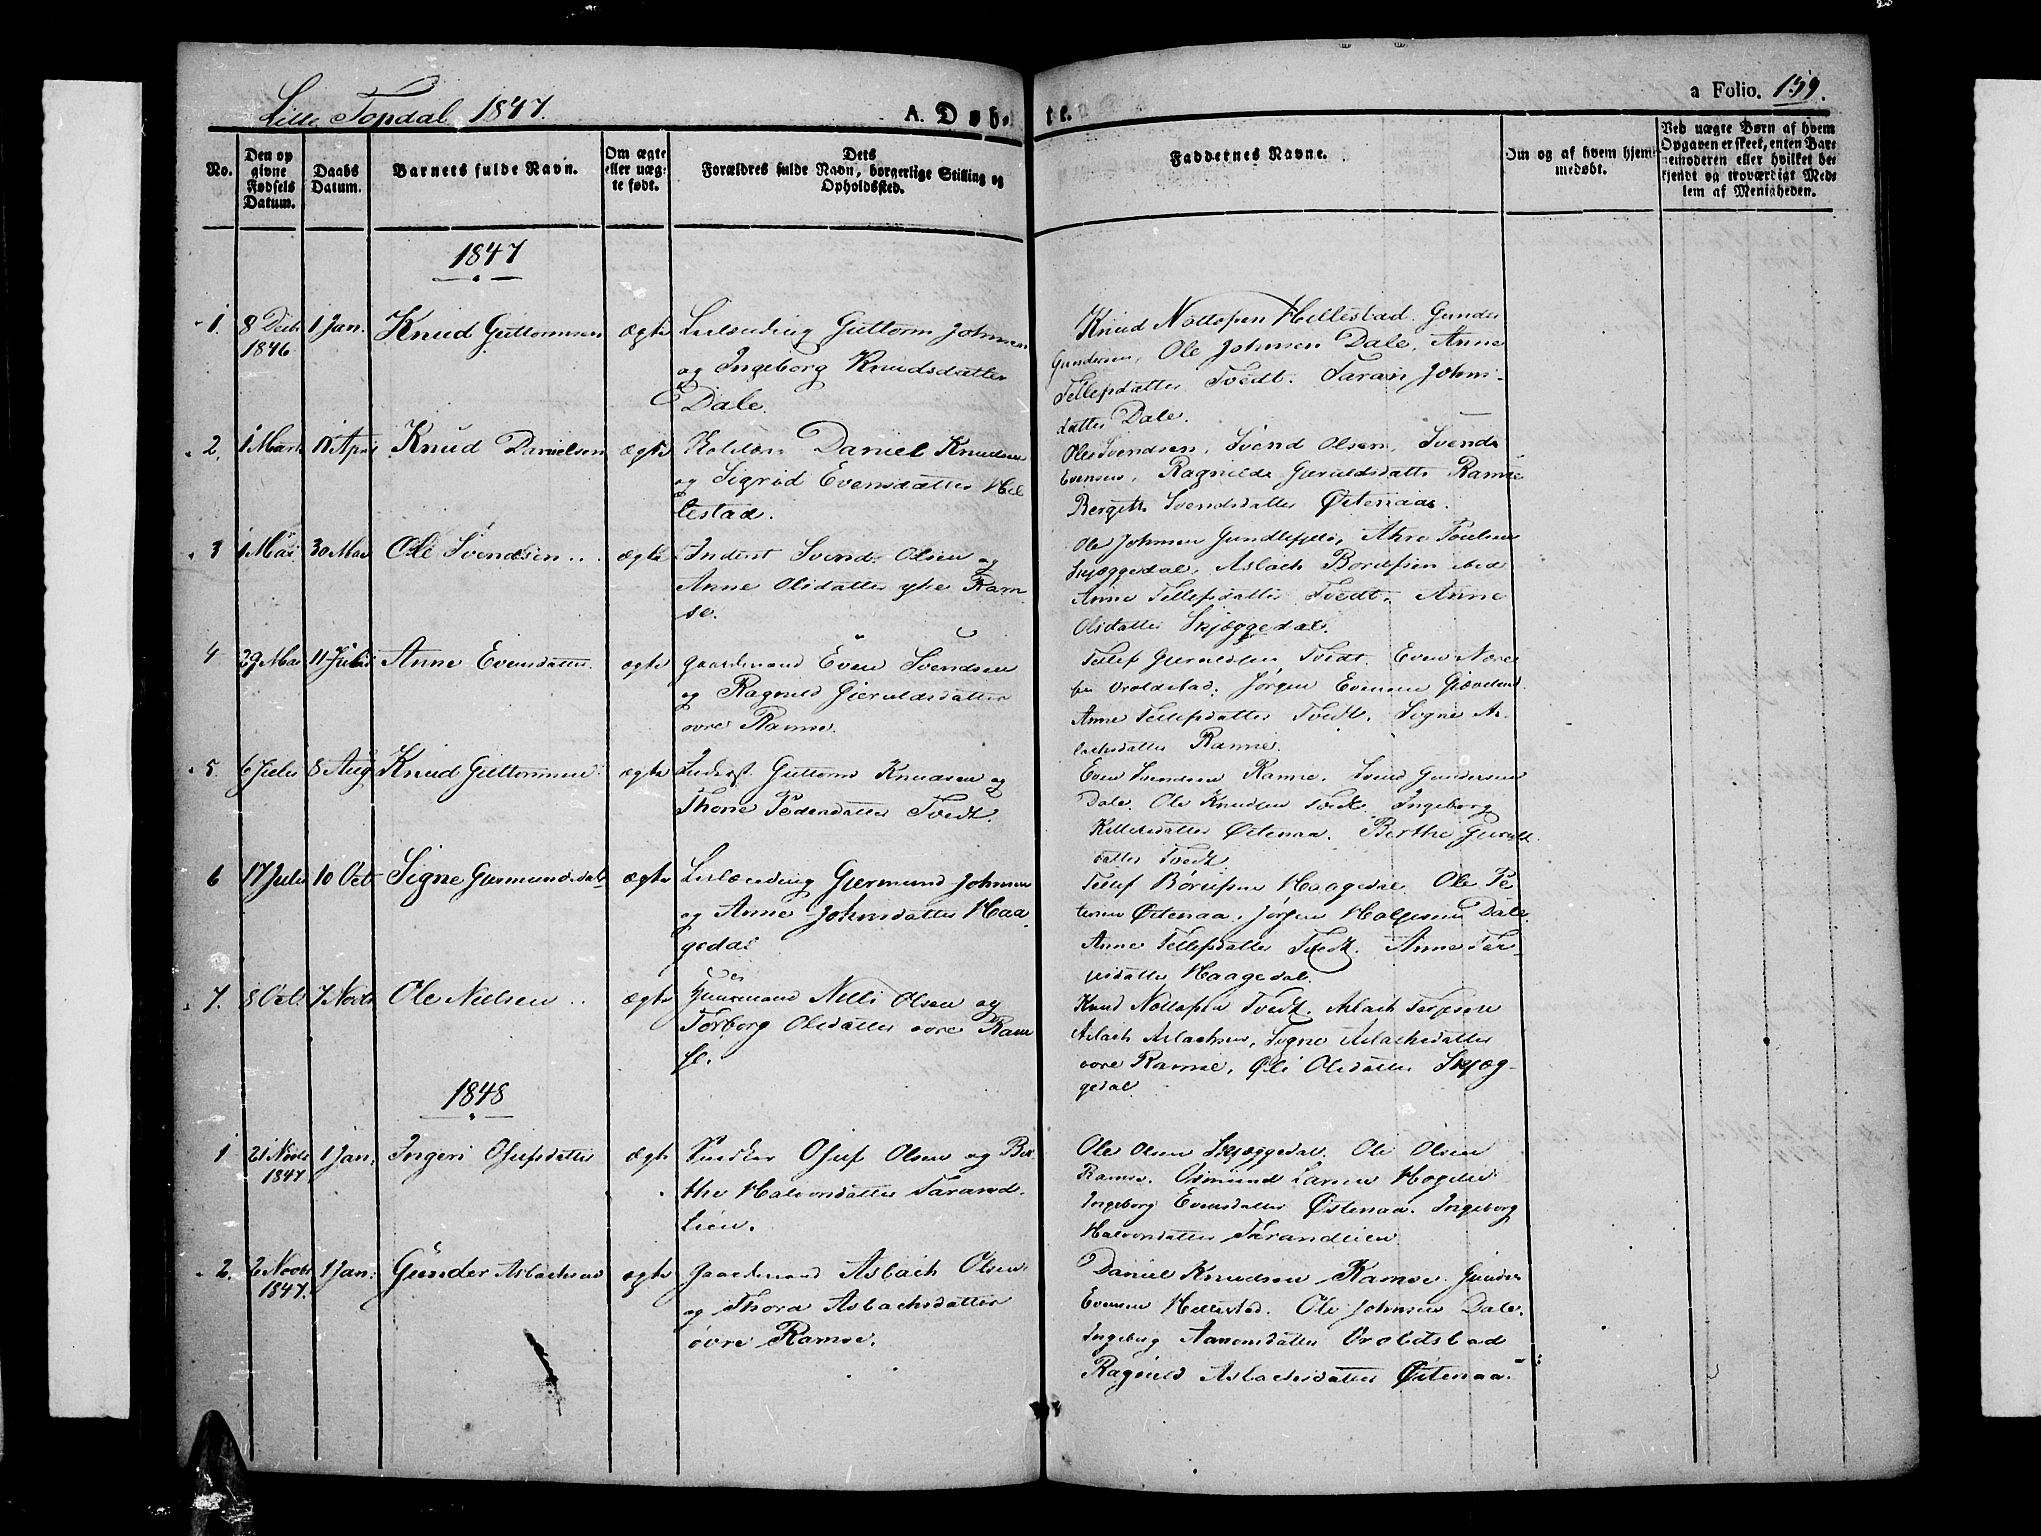 Lille Topdal 1847.
A. Døbte.
a Folio. 159.
No.
Den opgivne Fødsels Datum.
Daabs Datum.
Barnets fulde Navn.
Om ægte eller uægte født.
Dets Forældres fulde Navn, borgerlige Stilling og Opholdssted.
Faddernes Navne.
Om og af hvem hjemmedøbt.
Ved uægte Børn af hvem
Opgaven er skeet, enten Bar-
nemoderen eller hvilket be-
kjendt og troværdigt Med-
lem af Menigheden.
1847
1. 8 Decbr 1846 1 Jan. Knud Guttormsen ægte Leilænding Guttorm Johnsen
og Ingeborg Knudsdatter
Dale.
Knud Hillestad. Gunder
Gundersen, Ole Johnsen Dale, Anne
Tellefsdatter Tvedt. Taran Johns-
datter Dale.
2. 1 Marts April Knud Danielsen ægte Daniel Knudsen
og Sigrid Evensdatter Hil
lestad.
Ole Svendsen, Svend Olsen, Svend
Evensen, Ragnilde Gjeruldsdatter Ramse
Bergitte Svendsdatter Østenaa.
3 1 Mai 30 Mai Ole Svendsen ægte Inderst Svend Olsen og
Anne Olsdatter Ram
se.
Ole Johnsen
Skjæggedal, Aslach
Anne Tellefsdatter Tvedt. Anne
Olsdatter Skjæggedal.
4 29 Mai 11 Julii Anne Evensdatter ægte Gaardmand Even Svendsen
og Ragnild Gjeruldsdatter
øvre Ramse.
Tellef Gjeruldsen Tvedt. Even
Vroldstad. Jørgen Evensen
Anne Tellefsdatter Tvedt. Sogne As-
lachsdatter Ramse.
5. 6 Julii 8 Aug Knud Guttormsen ægte Inderst Guttorm Knudsen og
Thone Pedersdatter Tvedt.
Even Svendsen Ramse. Svend Gundersen
Dale. Ole Knudsen Tvedt. Ingeborg
Østenaa. Berthe Gjeruld
datter Tvedt
6 17 Julii 10 Oct Signe Gjermundsdatter ægte Leilænding Gjermund Johnsen
og Anne Johnsdatter Haa
gedal
Haagedal. Ole Pe
tersen Østenaa, Jørgen Dale.
Anne Tellefsdatter Tvedt. Anne Ter-
jesdatter Haagedal.
7. 8 Oct 7 Novbr Ole Nielsen ægte Gaardmand Nells Olsen og
Torborg Olsdatter øvre Ram
se.
Knud Tvedt. Aslach Terjesen
Aslach Aslachsen, Signe Aslachsdatter
øvre Ramse, Olsdatter Skjæg-
gedal.
1848
1 21 Novbr 1847 1 Jan. Ingeri Osufsdatter ægte Osuf Olsen og Ber
the Halvorsdatter Tarand
lien.
Ole Olsen Skjæggedal. Ole Olsen
Ramse. Osmund Larsen
Ingeborg Evensdatter Østenaa. Ingeborg
Halvorsdatter Tarandlien.
2. 2 Novbr 1847. 1 Jan. Gunder Aslachsen ægte Gaardmand Aslach Olsen
og Thora Aslachsdatter
øvre Ramse.
Daniel Knudsen Ramse. Gunder
Evensen Hillestad. Ole Johnsen Dale.
Ingeborg Aanensdatter Vroldstad
Ragnild Aslachsdatter Østenaa.